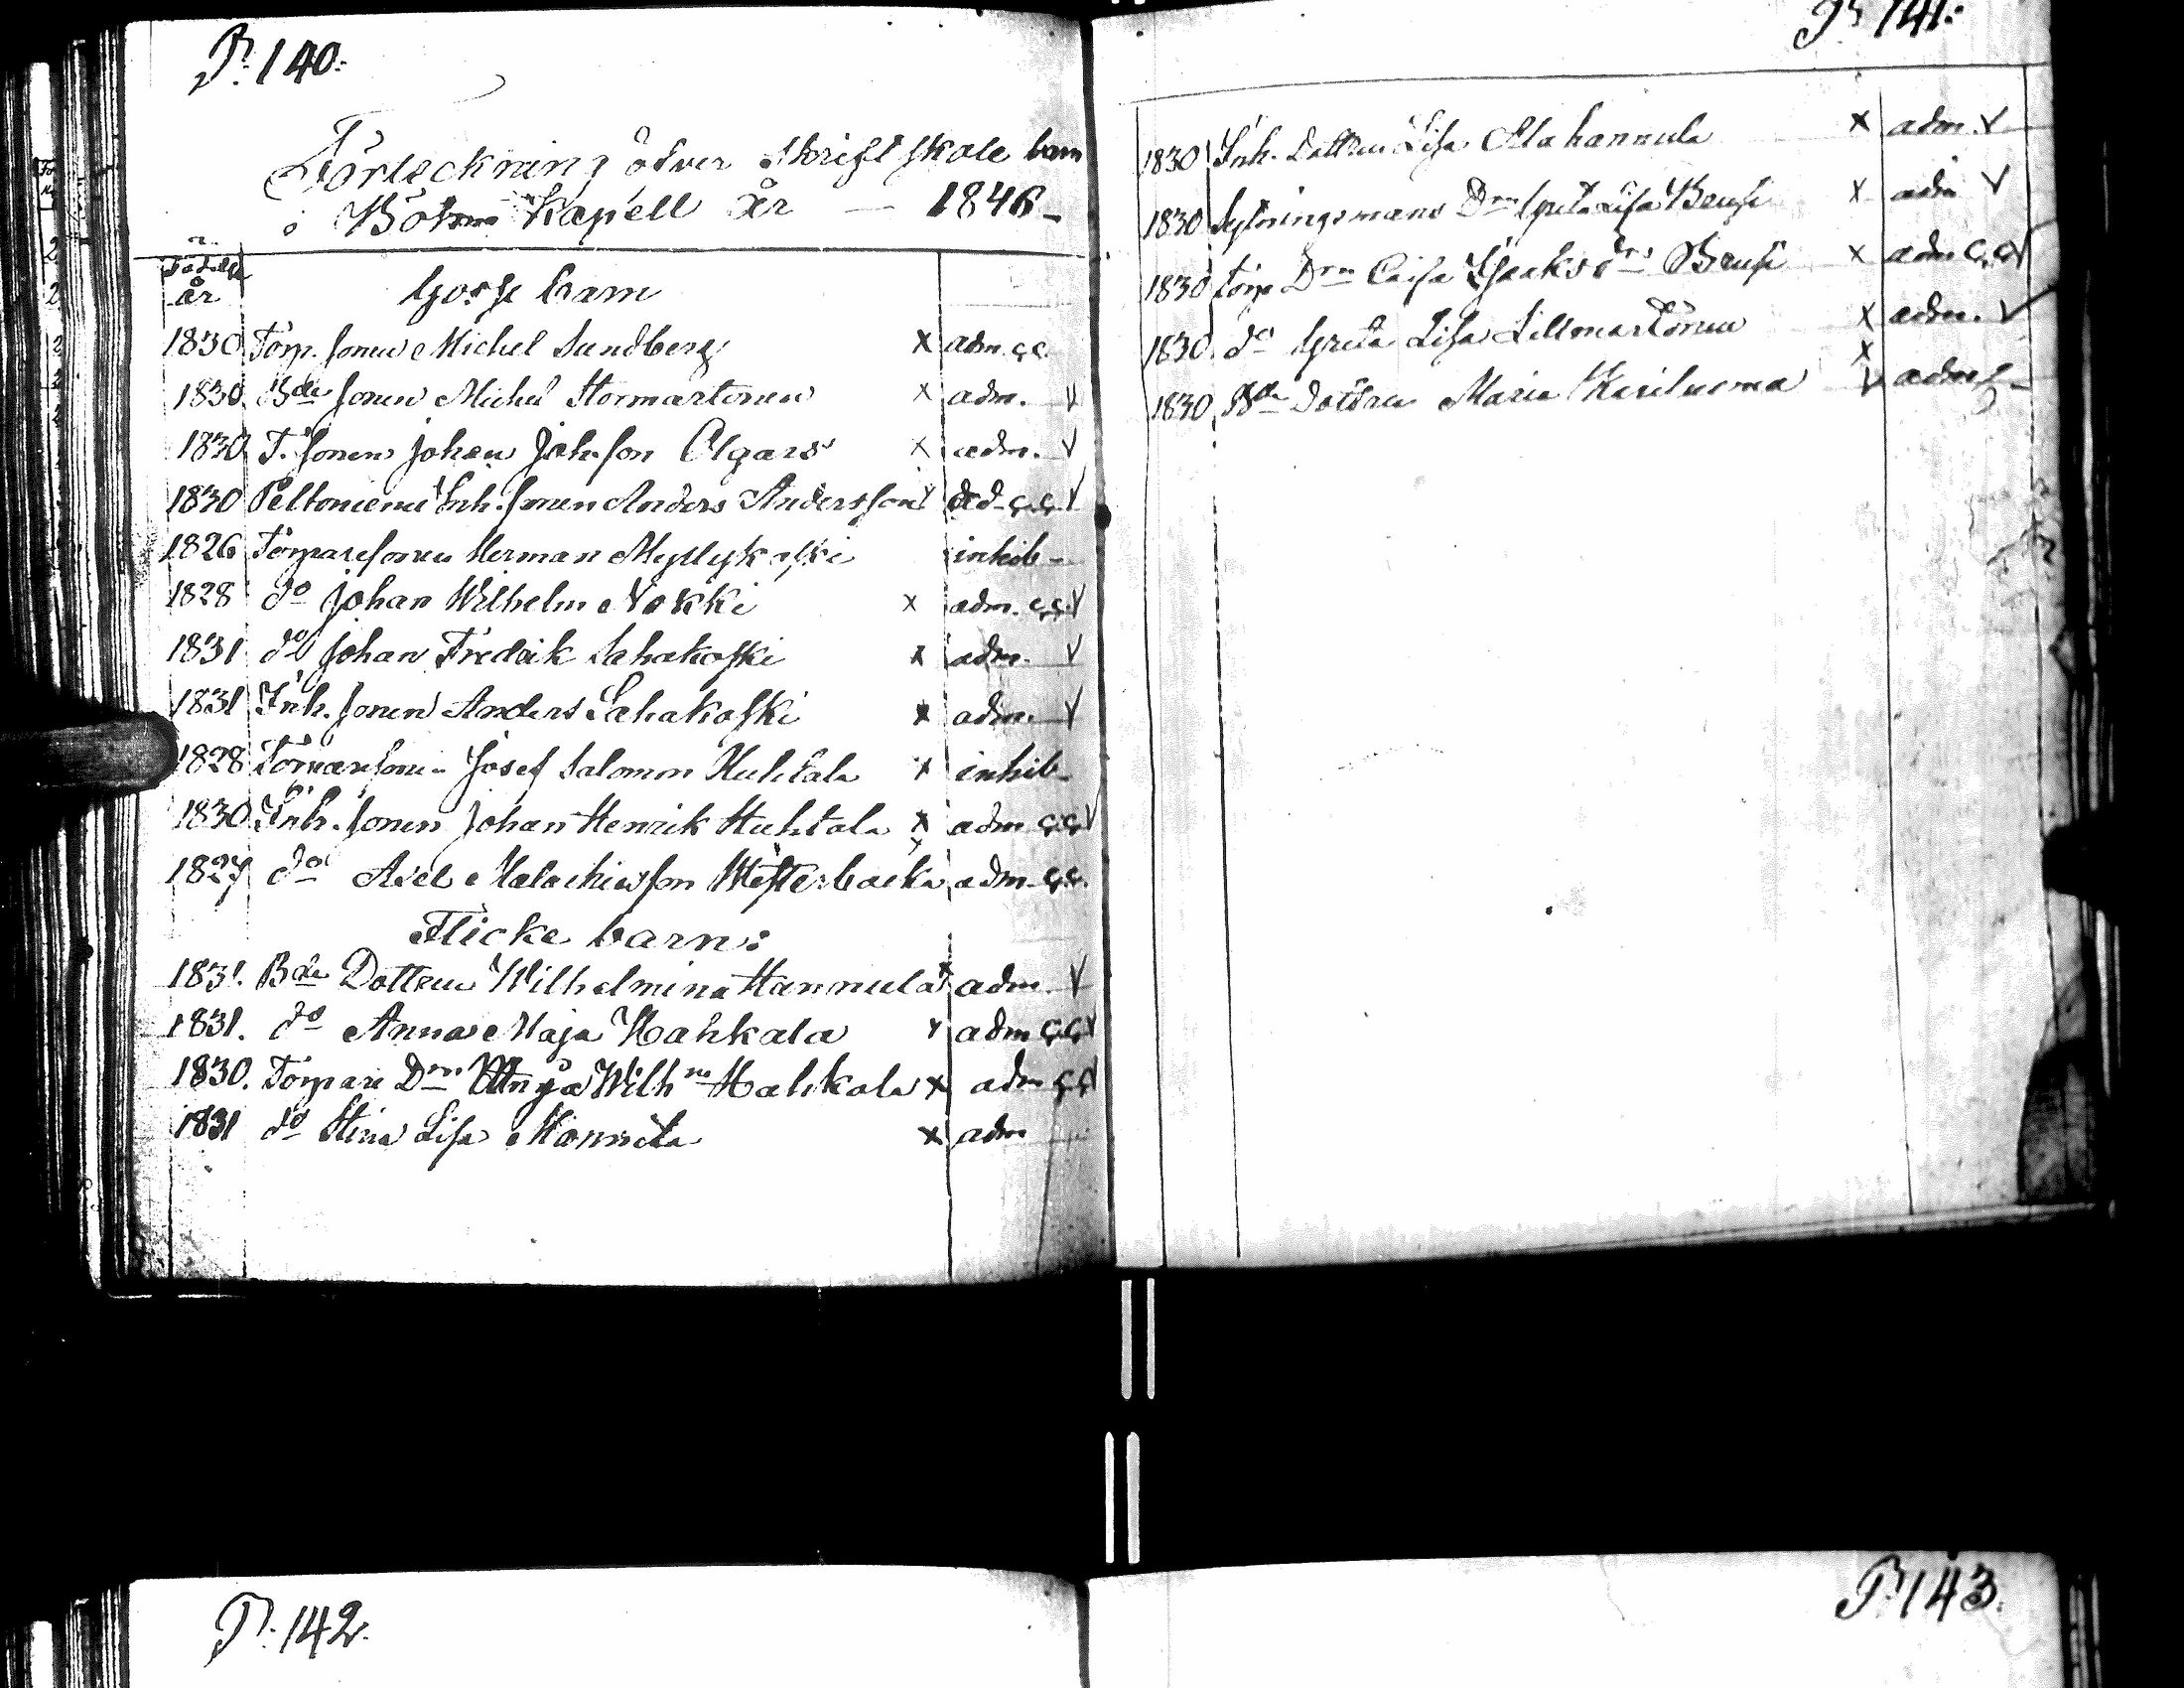 P. 140.
Förteckning öfver Skriftskole barn
i Bötom Kapell År — 1846 -
Födelse
år
Gosse barn
1830 Torp. sonen Michel Sundberg x adm. c c.
1830 Bde sonen Michel Stormartonen x adm. V
1830. T. sonen Johan Johsson Olgars x adm. V
1830 Peltoniemi Inh. sonen Anders Andersson V
1826 Torparesonen Herman Myllykoski inhib -
1828 do Johan Wilhelm Nokki x adm. c c. V
1831 do Johan Fredrik Sahakoski x adm. V
1831 Inh. sonen Anders Sahakoski x adm. V
1828 Josef Salomon Huhtala x inhib -
1830 Inh. sonen Johan Henrik Huhtala x adm c c V
1827 do Axel Malachiesson Westerbacka adm. c c.
Flicke barn:
1831. Bde Dottren Wilhelmina Hannula x adm. V
1831. do Anna Maja Kahkala x adm c c V
1830. Torpare Drn Wilhna x adm c c V
1831 do Stina Lisa x adm
P. 141.
1830 Inh. Dottren Lisa Alahannula x adm. V
1830 Sytningsmans Drn Greta Lisa Brusi x adm V
1830 torp Drn Caisa Isaksdrs Brusi x adm c c V
1830. do Greta Lisa Lillmartonen x adm. V
1830 Bde Dottren Maria x V adm
P. 142.
P. 143.